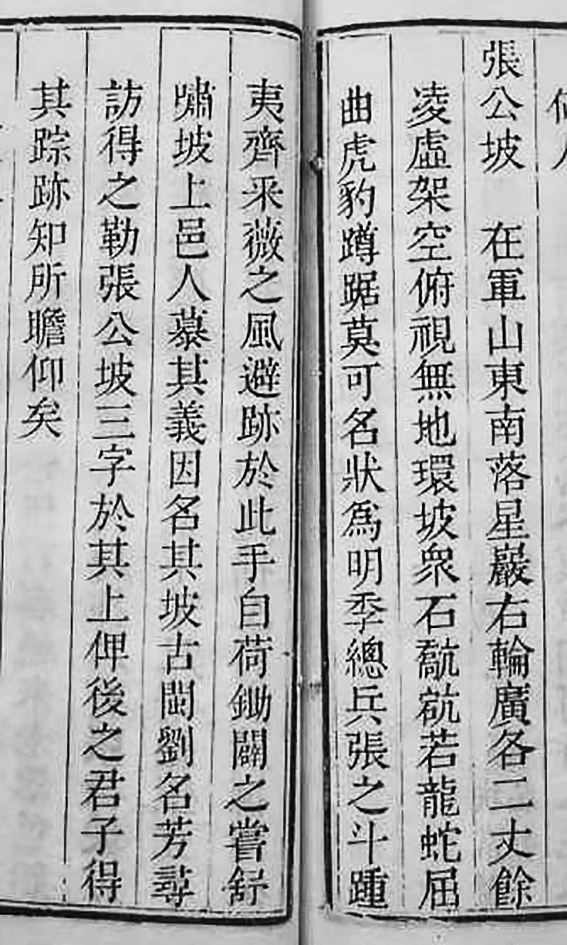 張公坡　在軍山東南落星巖右輪廣各二丈餘
凌虛架空俯視無地環坡衆石巍峩若龍蛇屈
曲虎豹蹲踞莫可名狀爲明季總兵張之斗踵
夷齊采薇之風避跡於此手自荷鋤闢之嘗舒
嘯坡上邑人慕其義因名其坡古閩劉名芳尋
訪得之勒張公坡三字於其上俾後之君子得
其踪跡知所瞻仰矣